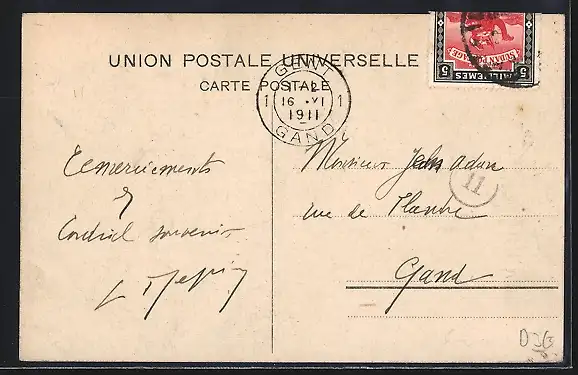 UNION POSTALE UNIVERSELLE
CARTE POSTALE
5 MILLIEMES 5
SUDAN POSTAGE
GENT
1 16 VI 1
1911
GAND
Remerciements
&
Cordial souvenir
Monsieur Jean Adam
rue de Flandre
11
Gand